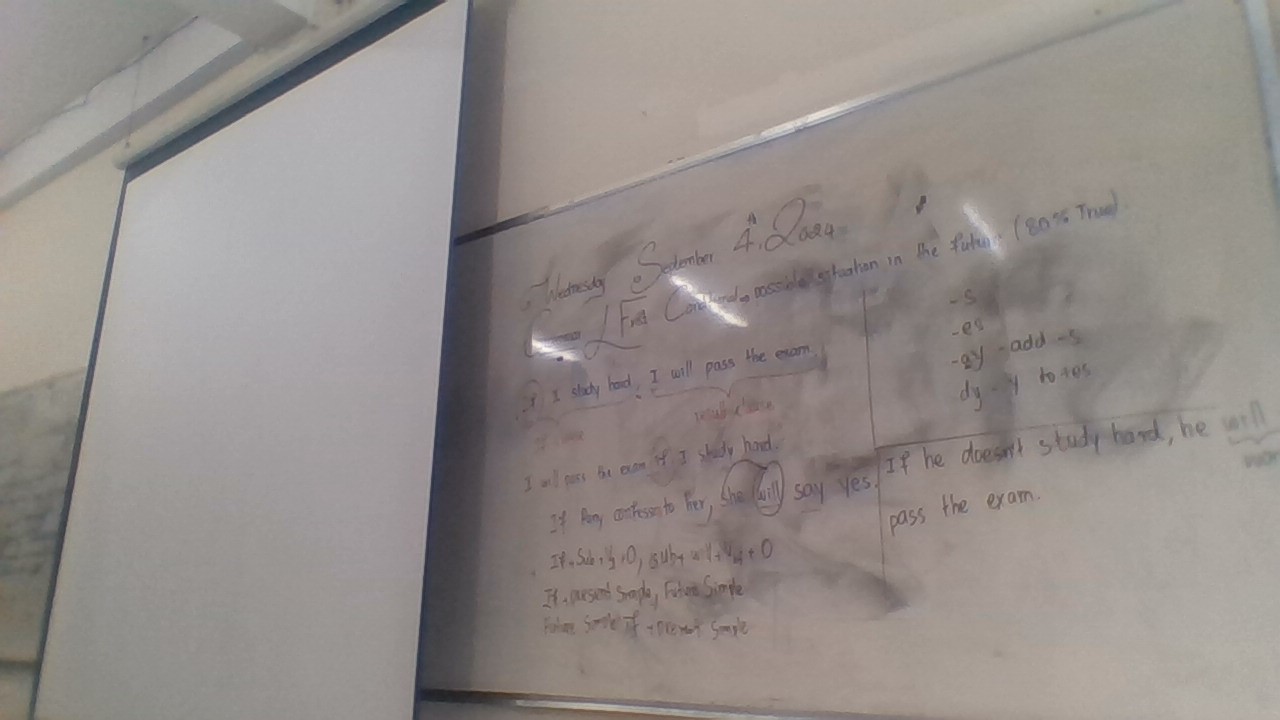 Wednesday September 4, 2024
Grammar First Conditional possible situation in the future (80% True).
If I study hard, I will pass the exam.
if clause result clause
I will pass the exam if I study hard.
If confess to her, she will say yes.
If + Sub + V1 + O, sub + will + V + O
If + present simple, Future Simple
Future simple if + present simple
-s
-es
-ay - add -s
dy - y to +es
If he doesn't study hard, he will
pass the exam.